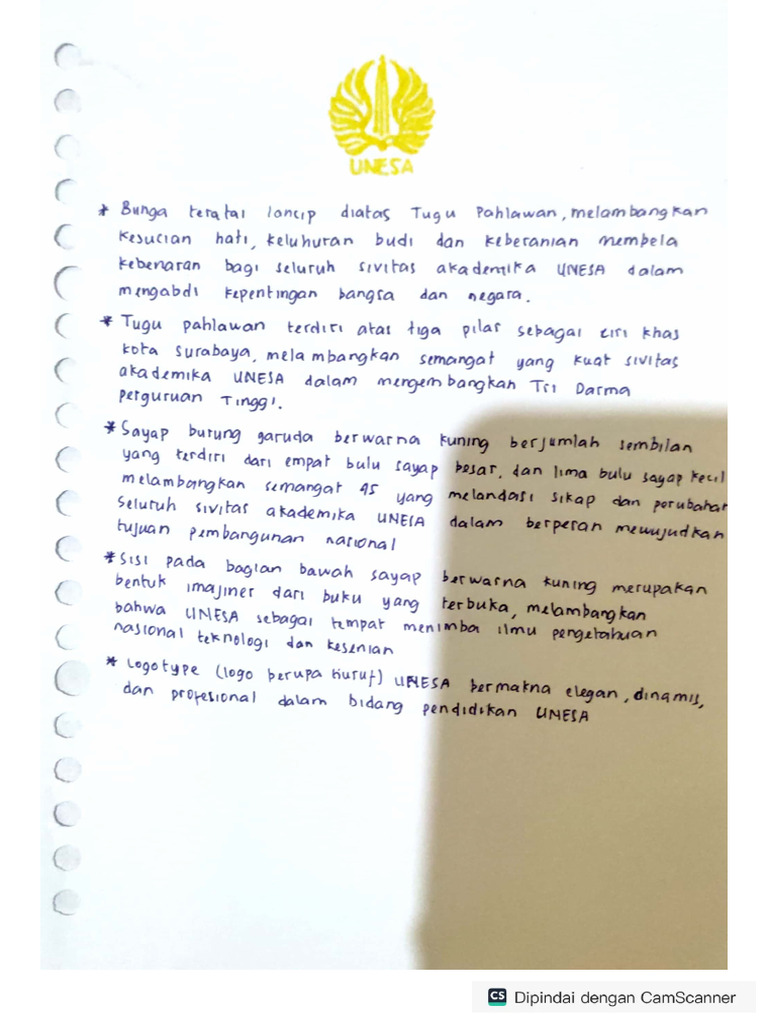 UNESA
* Bunga teratai loncip diatas Tugu Pahlawan, melambangkan
kesucian hati, keluhuran budi dan keberanian membela
kebenaran bagi seluruh sivitas akademika UNESA dalam
mengabdi kepentingan bangsa dan negara.
* Tugu pahlawan terdiri atas tiga pilar sebagai ciri khas
kota Surabaya, melambangkan semangat yang kuat sivitas
akademika UNESA dalam mengembangkan Tri Darma
perguruan Tinggi.
* Sayap burung garuda berwarna kuning berjumlah sembilan
yang terdiri dari empat bulu sayap besar, dan lima bulu sayap kecil
melambangkan semangat 45 yang melandasi sikap dan perubahan
seluruh sivitas akademika UNESA dalam berperan mewujudkan
tujuan pembangunan nasional
* Sisi pada bagian bawah sayap berwarna kuning merupakan
bentuk imajiner dari buku yang terbuka, melambangkan
bahwa UNESA sebagai tempat menimba ilmu pengetahuan
nasional teknologi dan kesenian
* Logotype (logo berupa huruf) UNESA bermakna elegan, dinamis,
dan profesional dalam bidang pendidikan UNESA
CS Dipindai dengan CamScanner